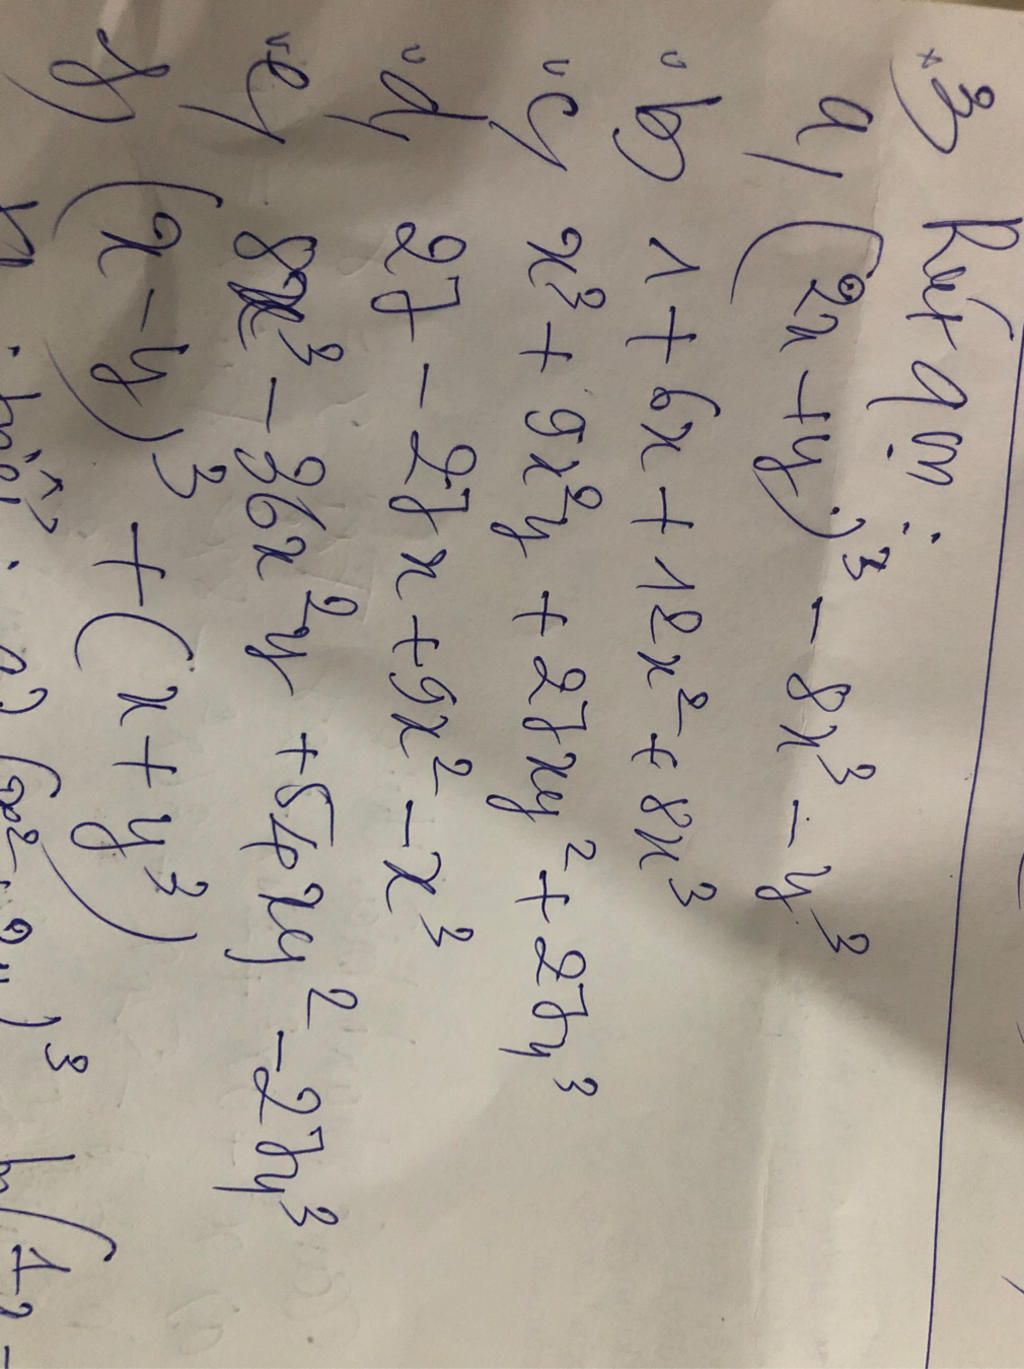 3) Rút gọn :
a) (2x + y)³ - 8x³ - y³
b) 1 + 6x + 12x² + 8x³
c) x³ + 9x²y + 27xy² + 27y³
d) 27 - 27x + 9x² - x³
e) 8x³ - 36x²y + 54xy² - 27y³
f) (x - y)³ + (x + y³)